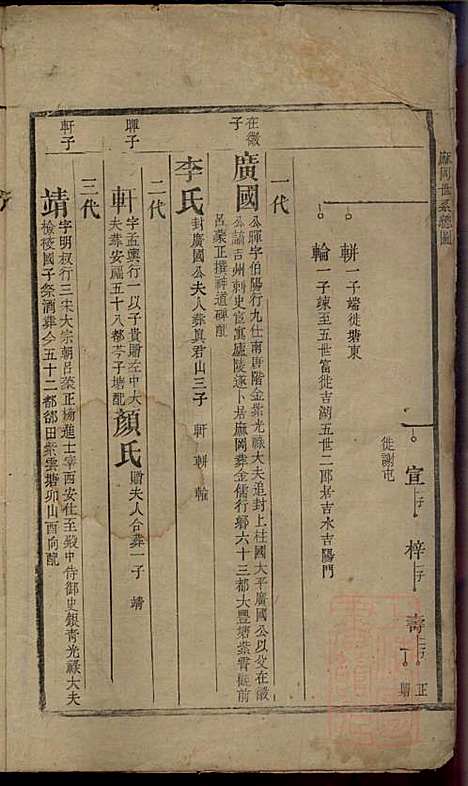 宣 一子
梓 一子
壽 二子
正
期
徙謝屯
輧 一子端徙塘東
輪 一子竦至五世富徙吉湖五世二郎居吉水吉陽門
麻岡世系總圖
一代
在徽子
廣國
公暉字伯陽行九仕南唐階金紫光祿大夫追封上柱國大平廣國公以父在徽
公謫吉州刺史宦寓廬陵遂卜居麻岡葬金儒行鄉六十三都大豐塘紫霄觀前
呂蒙正撰神道碑配
李氏
封廣國公夫人葬真君山三子 軒 輧 輪
二代
暉子
軒
字孟興行一以子貴贈左中大
夫葬安福五十八都苓子塘配
顏氏
贈夫人合葬一子 靖
三代
軒子
靖
字明叔行三宋大宗朝呂蒙正榆進士宰西安仕至殿中侍御史銀青光祿大夫
檢校國子祭酒葬今五十二都鄒田紫雲塘卯山酉向配